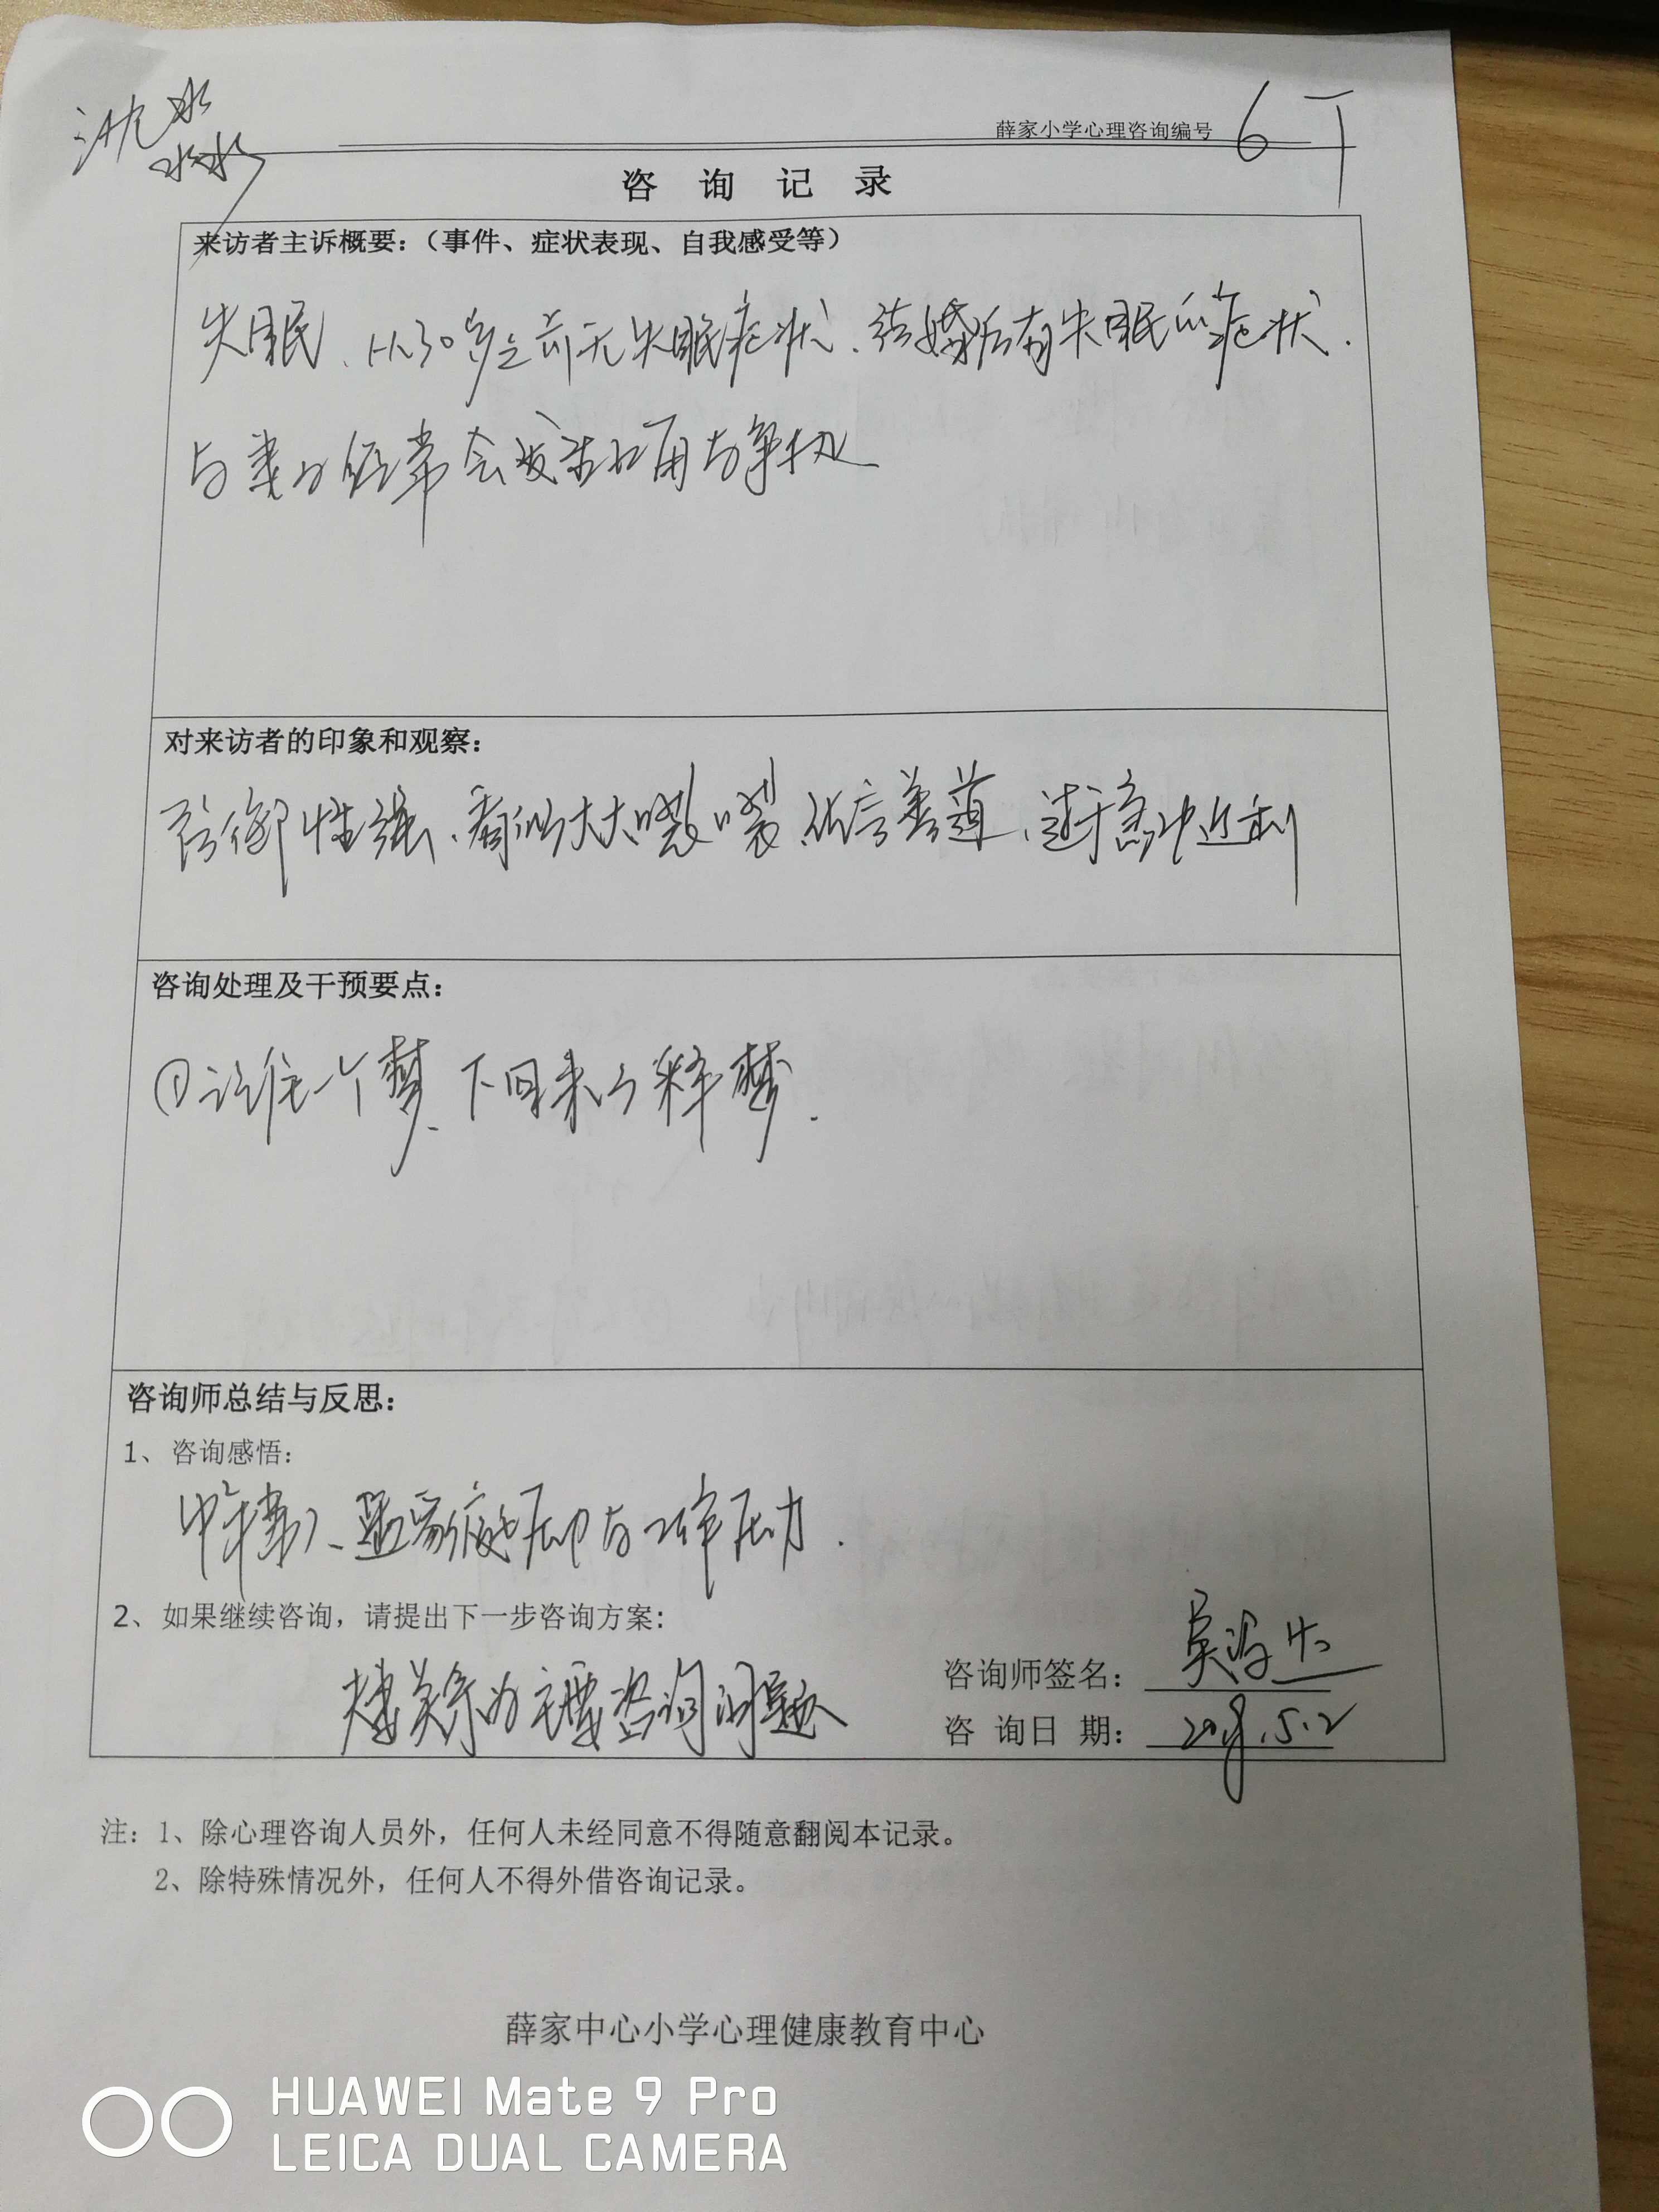 沈淼
薛家小学心理咨询编号 6下
咨 询 记 录
来访者主诉概要：（事件、症状表现、自我感受等）
失眠、从30岁之前无失眠症状、结婚后有失眠的症状.
与妻子经常会发生口角与争执
对来访者的印象和观察：
防御性强、看似大大咧咧、能言善道、过于急功近利
咨询处理及干预要点：
①记住一个梦、下回来了释梦.
咨询师总结与反思：
1、咨询感悟：
中年男人、 压力与工作压力.
2、如果继续咨询，请提出下一步咨询方案：
夫妻关系为主要咨询问题
咨询师签名：吴
咨 询日 期：2019.5.2
注：1、除心理咨询人员外，任何人未经同意不得随意翻阅本记录。
2、除特殊情况外，任何人不得外借咨询记录。
薛家中心小学心理健康教育中心
HUAWEI Mate 9 Pro
LEICA DUAL CAMERA